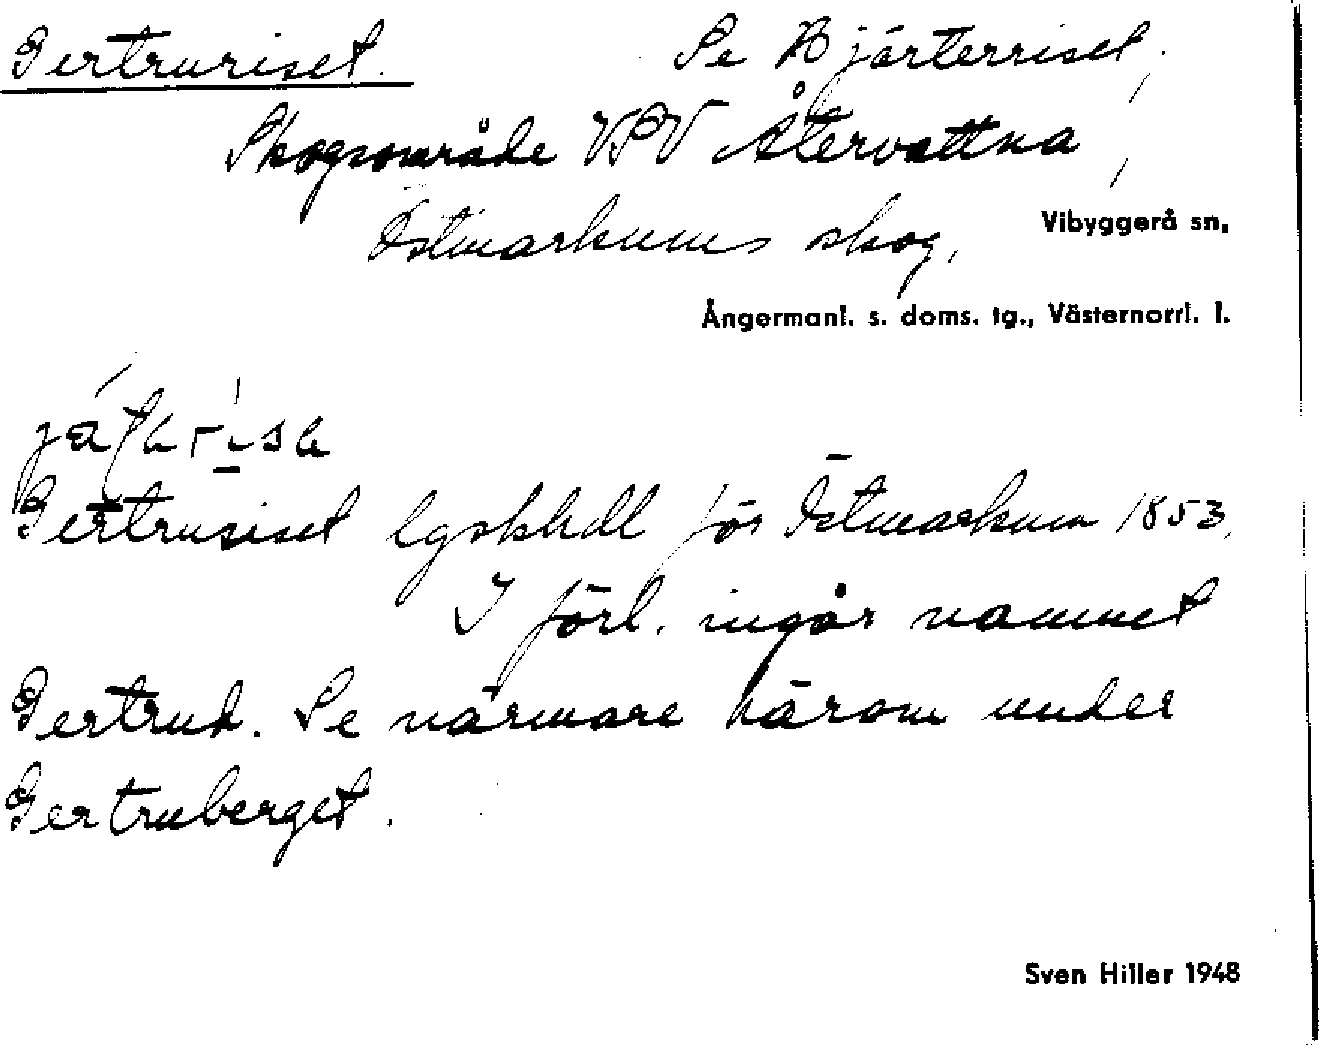 Gertruriset. Se Bjärterriset,
Skogsområde VSV Återvattna,
Östmarkums skog, Vibyggerå sn,
Ångermanl. s. doms. tg., Västernorrl. l.
Gertrusiset lgskhdl för Östmarkum 1853.
I förl. ingår namnet
Gertrud. Se närmare härom under
Gertruberget.
Sven Hiller 1948